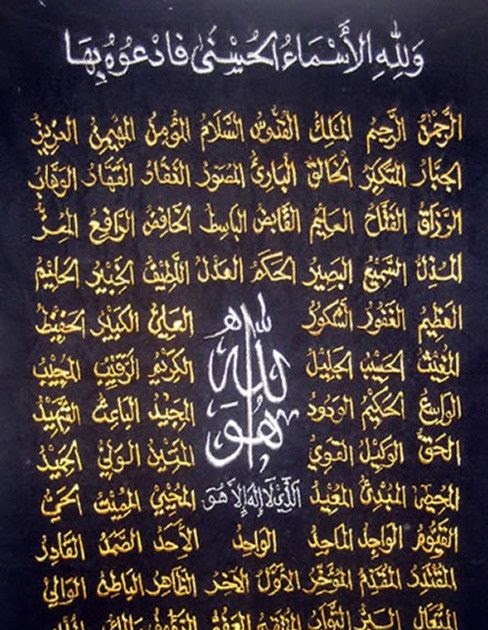 وَلِلّٰهِ الأَسْمَاءُ الحُسْنَى فَادْعُوهُ بِهَا
الرَّحْمٰنُ الرَّحِيمُ المَلِكُ القُدُّوسُ السَّلَامُ المُؤْمِنُ المُهَيْمِنُ العَزِيزُ
الجَبَّارُ المُتَكَبِّرُ الخَالِقُ البَارِئُ المُصَوِّرُ الغَفَّارُ القَهَّارُ الوَهَّابُ
الرَّزَّاقُ الفَتَّاحُ العَلِيمُ القَابِضُ البَاسِطُ الخَافِضُ الرَّافِعُ المُعِزُّ
المُذِلُّ السَّمِيعُ البَصِيرُ الحَكَمُ العَدْلُ اللَّطِيفُ الخَبِيرُ الحَلِيمُ
العَظِيمُ الغَفُورُ الشَّكُورُ العَلِيُّ الكَبِيرُ الحَفِيظُ
الحَسِيبُ الجَلِيلُ الكَرِيمُ الرَّقِيبُ المُجِيبُ
الوَاسِعُ الحَكِيمُ الوَدُودُ المَجِيدُ البَاعِثُ الشَّهِيدُ
الحَقُّ الوَكِيلُ القَوِيُّ المَتِينُ الوَلِيُّ الحَمِيدُ
هُوَ
اللّٰه
الَّذِي لَا إِلٰهَ إِلَّا هُوَ
المُحْصِي المُبْدِئُ المُعِيدُ المُحْيِي المُمِيتُ الحَيُّ
القَيُّومُ الوَاجِدُ المَاجِدُ الوَاحِدُ الأَحَدُ الصَّمَدُ القَادِرُ
المُقْتَدِرُ المُقَدِّمُ المُؤَخِّرُ الأَوَّلُ الآخِرُ الظَّاهِرُ البَاطِنُ الوَالِي
المُتَعَالِ البَرُّ التَّوَّابُ المُنْتَقِمُ العَفُوُّ الرَّؤُوفُ